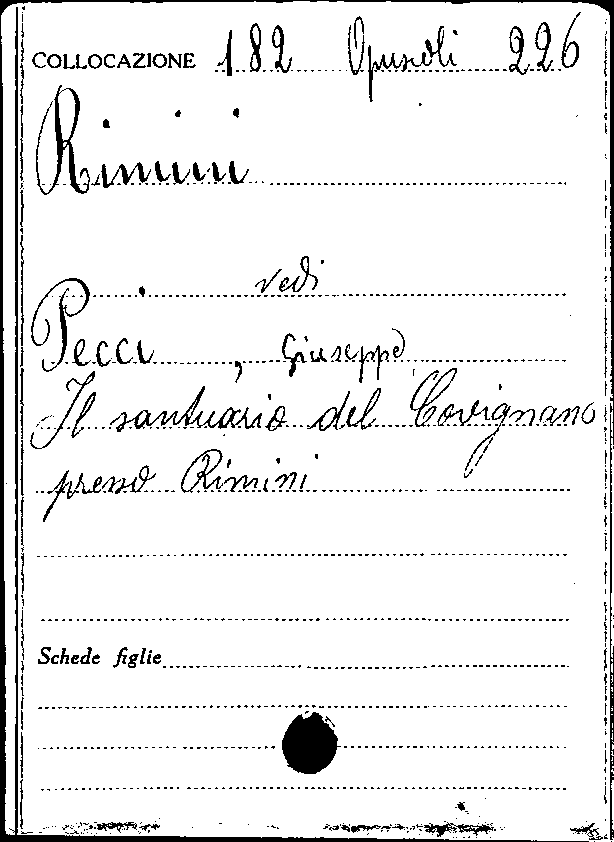 COLLOCAZIONE 182 Opuscoli 226
Rimini
vedi
Pecci, Giuseppe
Il santuario del Covignano
presso Rimini
Schede figlie